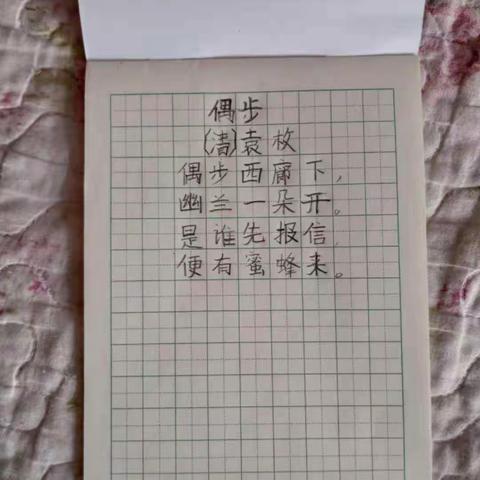 偶步
(清)袁枚
偶步西廊下，
幽兰一朵开。
是谁先报信，
便有蜜蜂来。